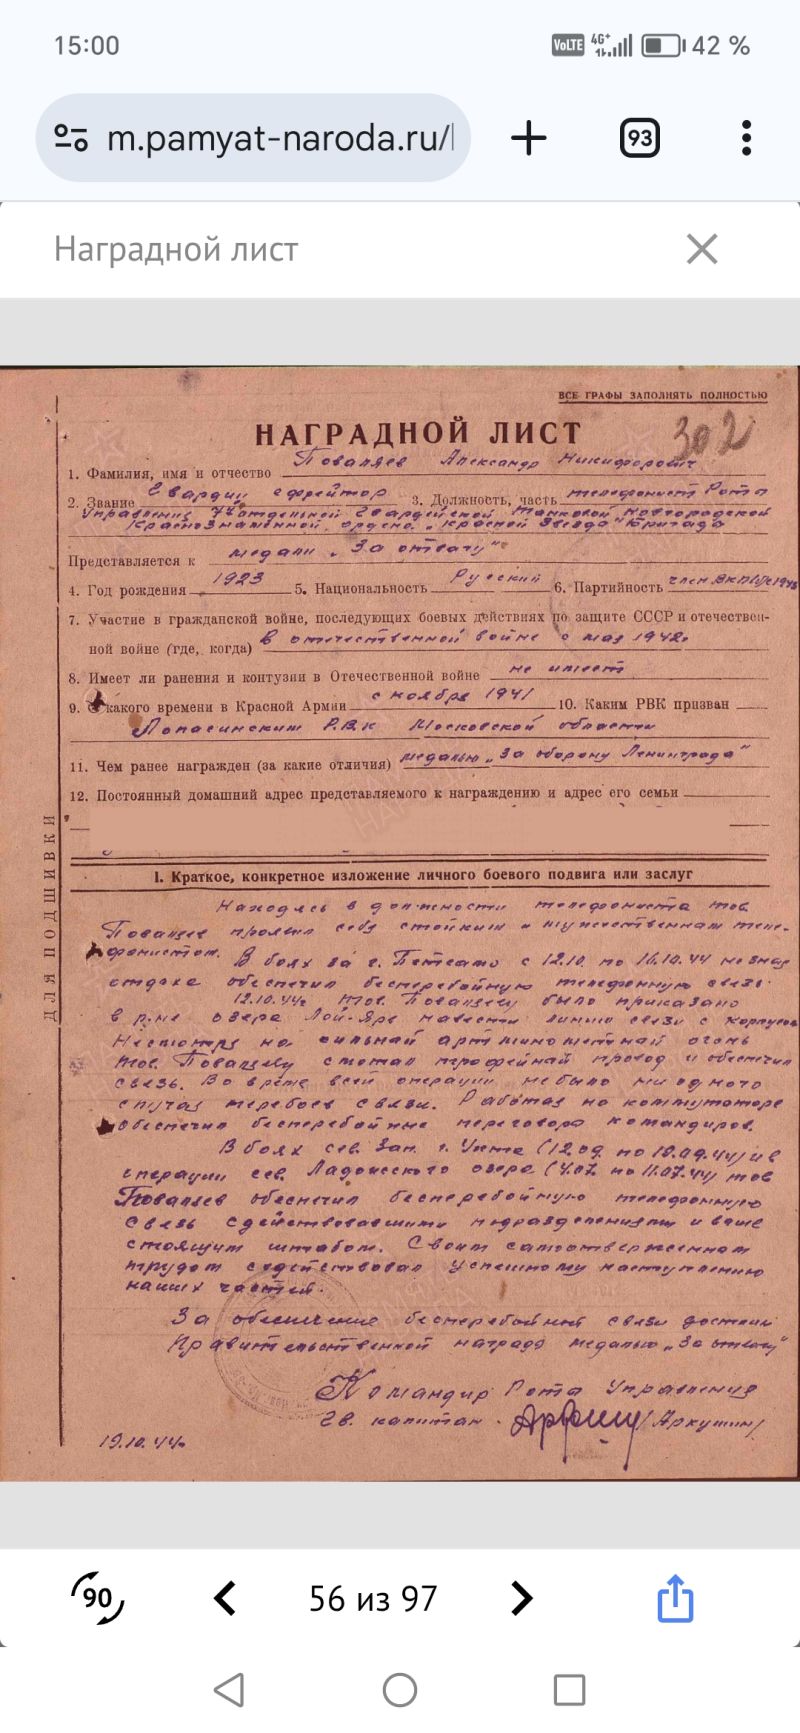 15:00
VoLTE 4G+ 42 %
m.pamyat-naroda.ru/
93
Наградной лист
ВСЕ ГРАФЫ ЗАПОЛНЯТЬ ПОЛНОСТЬЮ
302
НАГРАДНОЙ ЛИСТ
1. Фамилия, имя и отчество Поваляев Александр Никифорович
2. Звание Гвардии ефрейтор 3. Должность, часть телефонист Рота
управления 77 отдельной Гвардейской Танковой Новгородской
Краснознаменной ордена "Красной Звезда" бригада
Представляется к медали "За отвагу"
4. Год рождения 1923 5. Национальность Русский 6. Партийность член ВКП(б)
7. Участие в гражданской войне, последующих боевых действиях по защите СССР и отечествен-
ной войне (где, когда) в отечественной войне с мая 1942г
8. Имеет ли ранения и контузии в Отечественной войне не имеет
9. С какого времени в Красной Армии с ноября 1941 10. Каким РВК призван
Лопасинским РВК Московской области
11. Чем ранее награжден (за какие отличия) медалью "За оборону Ленинграда"
12. Постоянный домашний адрес представляемого к награждению и адрес его семьи
ДЛЯ ПОДШИВКИ
I. Краткое, конкретное изложение личного боевого подвига или заслуг
Находясь в должности телефониста тов.
Поваляев проявил себя стойким и мужественным теле-
фонистом. В боях за г. Петсамо с 12.10. по 16.10.44 не зная
отдыха обеспечил бесперебойную телефонную связь.
12.10.44г. тов. Поваляеву было приказано
в р-не озера навести линию связи с корпусом
Несмотря на сильный арт. минометный огонь
тов. Поваляеву смотал трофейный провод и обеспечил
связь. Во время всей операции не было ни одного
случая перебоев связи. Работая на коммутаторе
обеспечил бесперебойные переговора командиров.
В боях сев. зап. г. Ухта (12.09. по 18.09.44) и в
операции сев. Ладожского озера (4.07. по 11.07.44) тов
Поваляев обеспечил бесперебойную телефонную
связь с действовавшими подразделениями и выше
стоящим штабом. Своим самоотверженном
трудом содействовал успешному наступлению
наших частей.
За обеспечение бесперебойной связи достоин
Правительственной награда медалью "За отвагу"
Командир Рота Управления
Гв. капитан /Аркушин/
19.10.44г
90
56 из 97